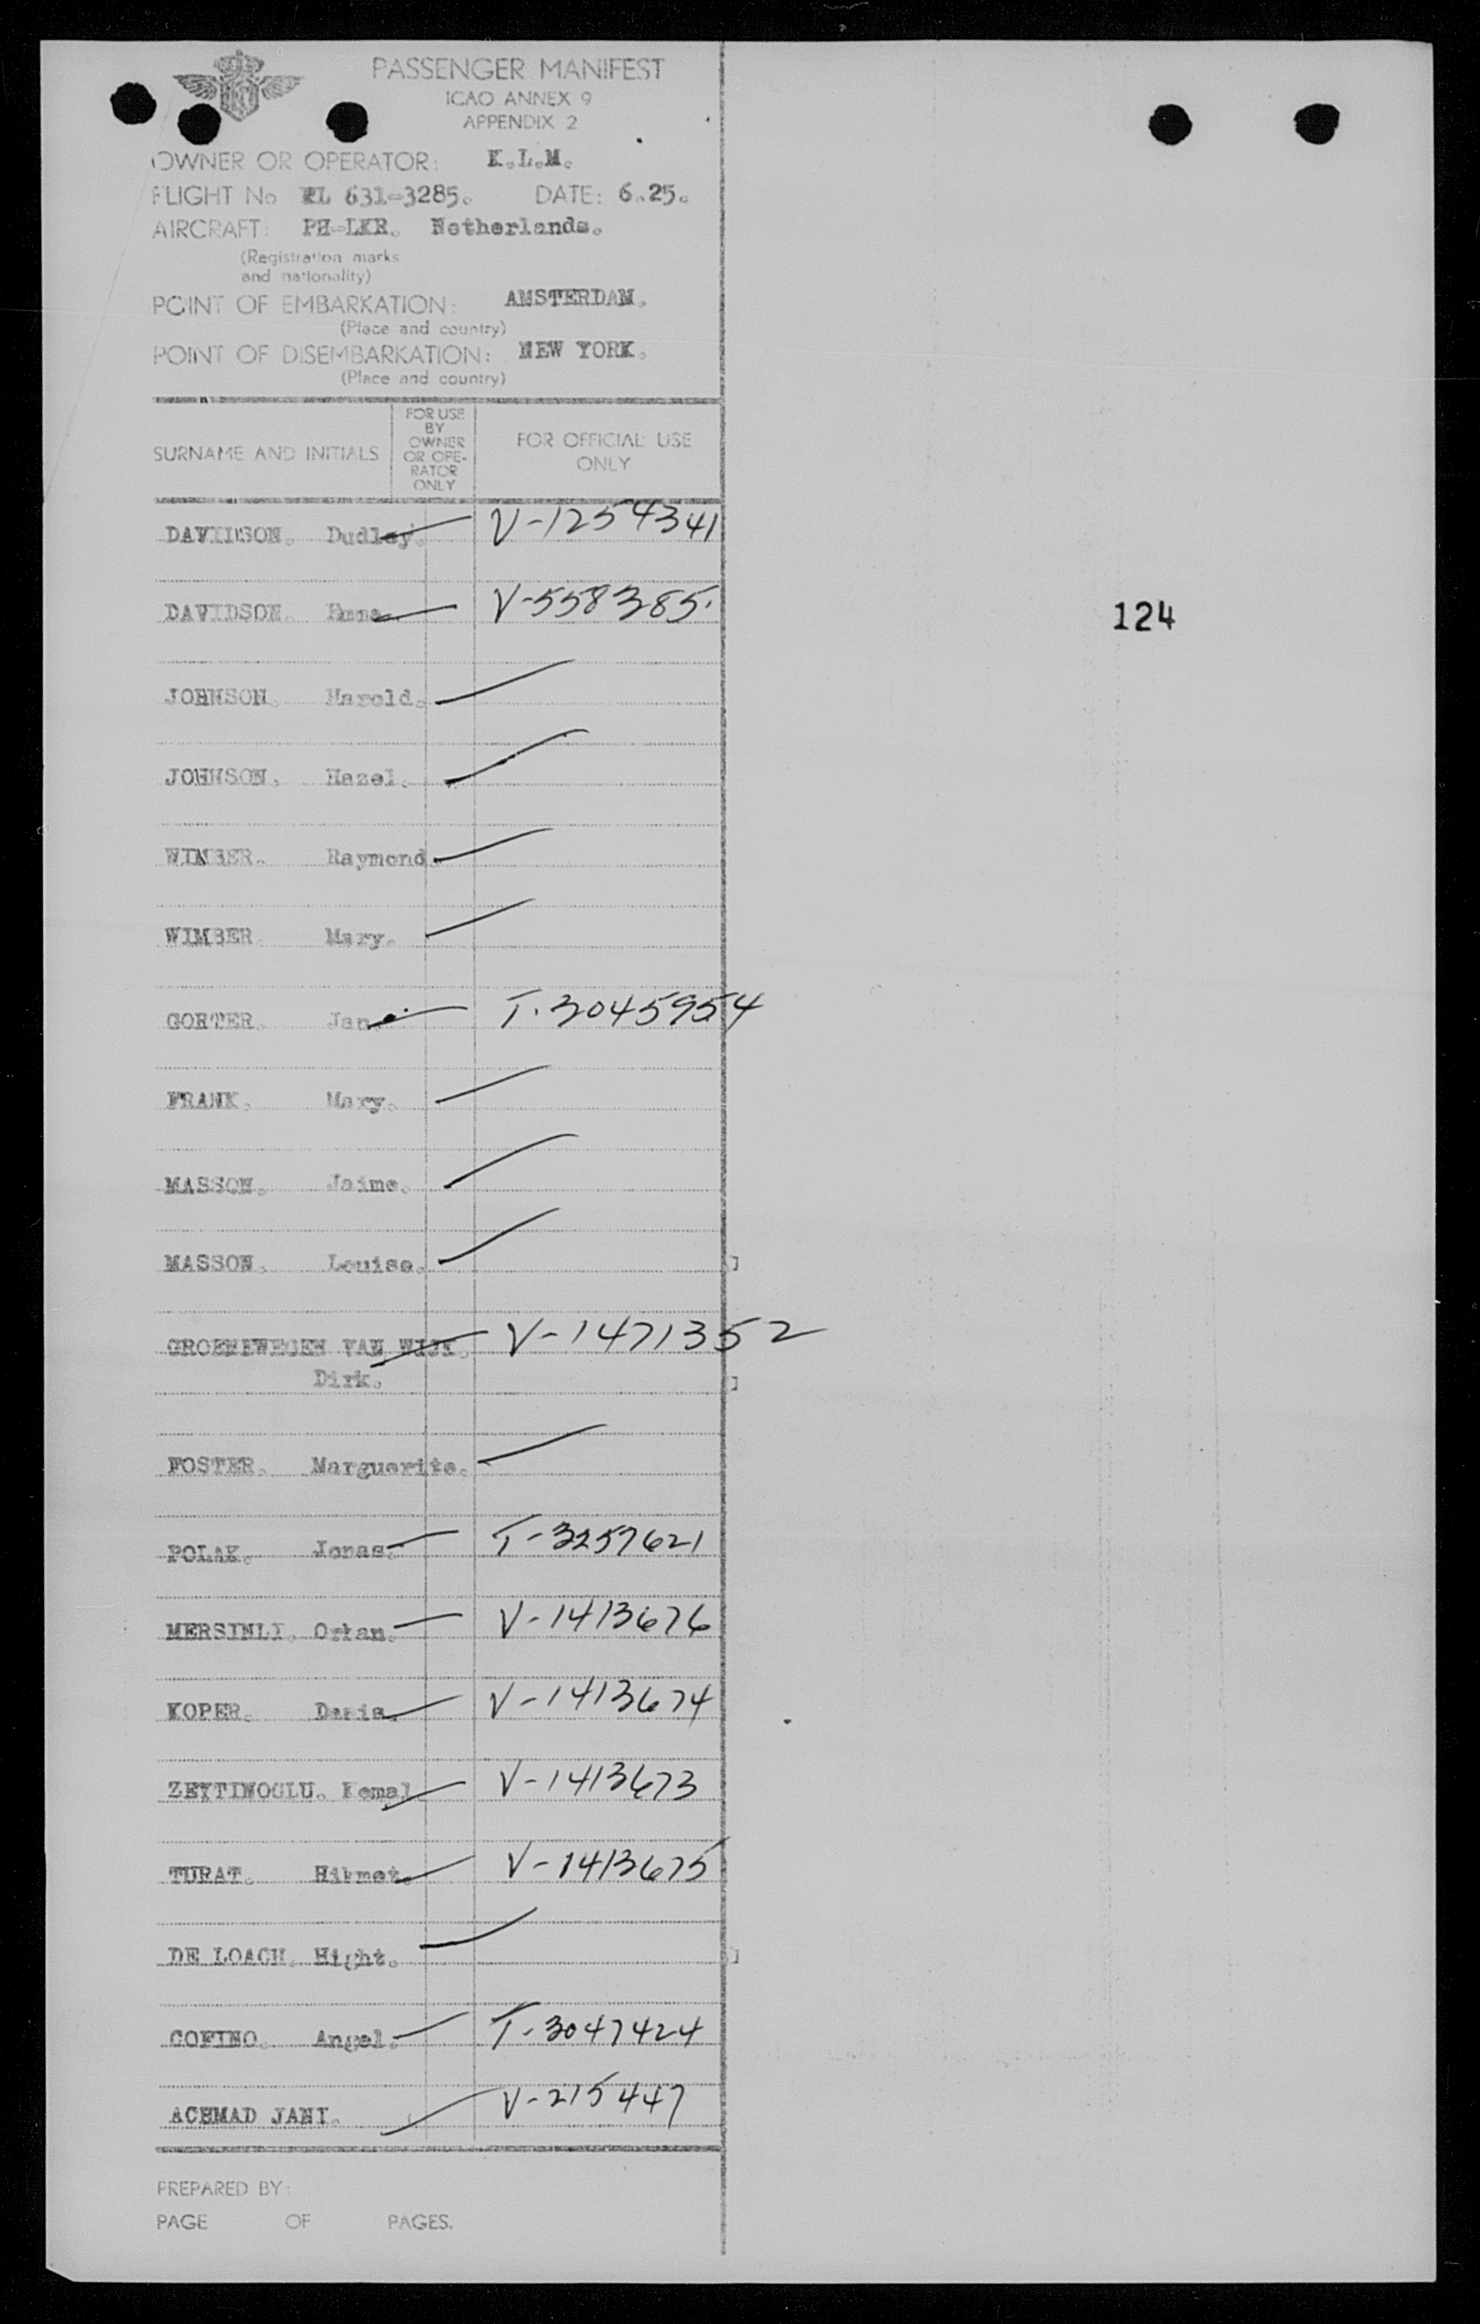 PASSENGER MANIFEST
ICAO ANNEX 9
APPENDIX 2
OWNER OR OPERATOR: K.L.M.
FLIGHT No KL 631-3285. DATE: 6.25.
AIRCRAFT: PH-LKR. Netherlands.
(Registration marks
and nationality)
POINT OF EMBARKATION: AMSTERDAM.
(Place and country)
POINT OF DISEMBARKATION: NEW YORK.
(Place and country)
SURNAME AND INITIALS
FOR USE
BY
OWNER
OR OPE-
RATOR
ONLY
FOR OFFICIAL USE
ONLY
DAVIDSON. Dudley. V-1254341
DAVIDSON. V-558385.
124
JOHNSON. Harold.
JOHNSON. Hazel.
WIMBER. Raymond.
WIMBER. Mary.
GORTER. Jan. T.3045954
FRANK. Mary.
MASSON. Jaime.
MASSON. Louise.
GROENEWEGEN VAN WIJK. V-1471352
Dirk.
FOSTER. Marguerite.
POLAK. Jonas. T-3257621
MERSINLI. Orhan. V-1413676
KOPER. V-1413674
ZEYTINOGLU. Kemal. V-1413673
TURAT. Hikmet. V-1413675
DE LOACH. Hight.
COFINO. Angel. T-3047424
ACHMAD JANI. V-215447
PREPARED BY:
PAGE OF PAGES.